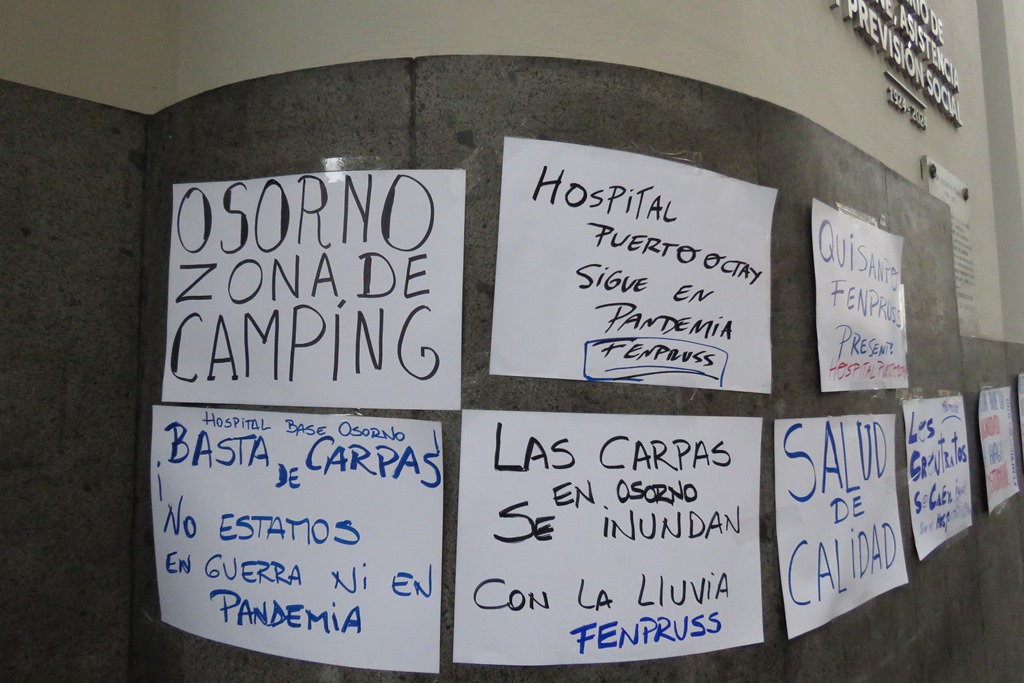 OSORNO
ZONA DE
CAMPING
HOSPITAL
PUERTO OCTAY
SIGUE EN
PANDEMIA
FENPRUSS
QUISANTO
FENPRUSS
PRESENTE
HOSPITAL
HOSPITAL BASE OSORNO
¡BASTA DE CARPAS!
NO ESTAMOS
EN GUERRA NI EN
PANDEMIA
LAS CARPAS
EN OSORNO
SE INUNDAN
CON LA LLUVIA
FENPRUSS
SALUD
DE
CALIDAD
LOS
SE CAEN
DE
ASISTENCIA
Y PREVISIÓN SOCIAL